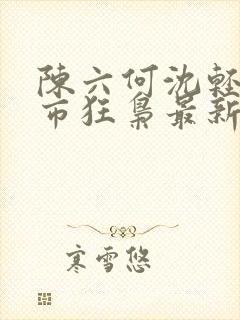 陳六何沈輕
市狂梟最新
寒雪悠